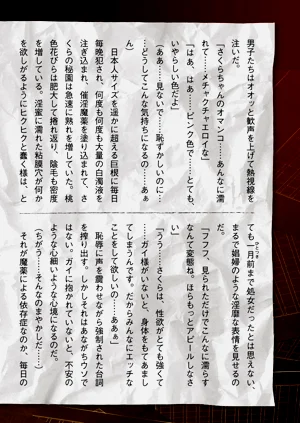 男子たちはオオッと歓声を上げて熱視線を
注いだ。
「さくらちゃんのオマンコ……あんなに濡
れて……メチャクチャエロイな」
「はぁ、はぁ……ピンク色で……とても、
いやらしい色だよ」
(ああ……見ないで……恥ずかしいのに…
…どうしてこんな気持ちになるの……あぁ
ん)
　日本人サイズを遥かに超える巨根に毎日
毎晩犯され、何度も何度も大量の白濁液を
注ぎ込まれ、催淫魔薬を塗り込まれて、さ
くらの秘園は急速に熟れを増していた。桃
色花びらは肥大して捲れ返り、陰毛も密度
を増している。淫蜜に濡れた粘膜穴が何か
を欲しがるようにヒクヒクと蠢く様は、と
ても一月前まで処女だったとは思えない。
ひとつき
まるで娼婦のような淫靡な表情を見せるの
だ。
「フフフ、見られただけでこんなに濡らす
なんて変態ね。ほらもっとアピールしなさ
い」
「うう……さくらは、性欲がとても強くて
……ガイ様がいないと、身体をもてあまし
てしまうんです。だからみんなにエッチな
ことをして欲しいの……あああ」
　恥辱に声を震わせながら強制された台詞
を搾り出す。しかしそれはあながちウソで
はない。ガイに抱かれていないと、不安の
ような心細いような心境になるのだ。
(ちがう……そんなのまやかしだ……)
　それが魔薬による依存症なのか、毎日の